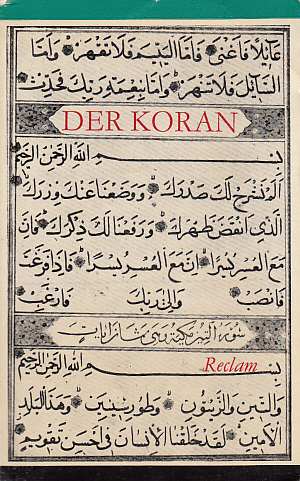 عَائِلًا فَاَغْنٰى فَاَمَّا الْيَتِيمَ فَلَا تَقْهَرْ وَاَمَّا
السَّائِلَ فَلَا تَنْهَرْ وَاَمَّا بِنِعْمَةِ رَبِّكَ فَحَدِّثْ
DER KORAN
بِسْمِ اللّٰهِ الرَّحْمٰنِ الرَّحِيمِ
اَلَمْ نَشْرَحْ لَكَ صَدْرَكَ وَوَضَعْنَا عَنْكَ وِزْرَكَ
الَّذِي اَنْقَضَ ظَهْرَكَ وَرَفَعْنَا لَكَ ذِكْرَكَ فَاِنَّ
مَعَ الْعُسْرِ يُسْرًا اِنَّ مَعَ الْعُسْرِ يُسْرًا فَاِذَا فَرَغْتَ
فَانْصَبْ وَاِلٰى رَبِّكَ فَارْغَبْ
سورة التين مكية وهي ثمان ايات
بِسْمِ اللّٰهِ الرَّحْمٰنِ الرَّحِيمِ
Reclam
وَالتِّينِ وَالزَّيْتُونِ وَطُورِ سِينِينَ وَهٰذَا الْبَلَدِ
الْاَمِينِ لَقَدْ خَلَقْنَا الْاِنْسَانَ فِي اَحْسَنِ تَقْوِيمٍ